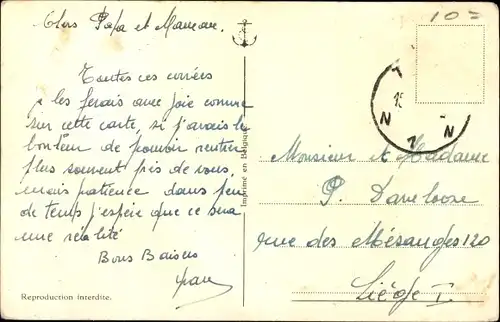 Chers Papa et Maman.
Toutes ces corvées
je les ferais avec joie comme
sur cette carte, si j'avais le
bonheur de pouvoir rentrer
plus souvent près de vous,
mais patience dans peu
de temps j'espère que ce sera
une réalité
Bons Baisers
Reproduction interdite.
Imprimé en Belgique
10=
15
N
Z
N
Monsieur et Madame
P. Daveloose
rue des Mésanges 120
Liège I